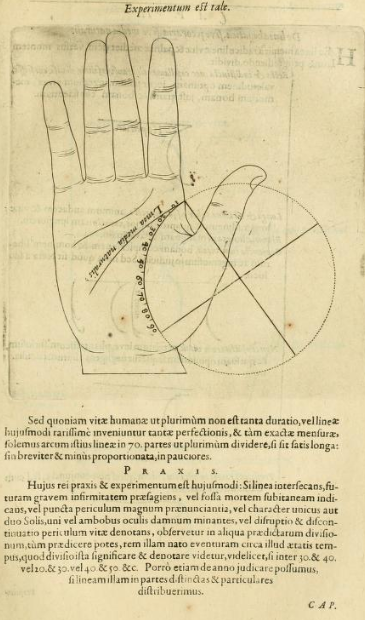 Experimentum est tale.
Linea media naturalis
10. 20. 30. 40. 50. 60. 70. 80. 90
Sed quoniam vitæ humanæ ut plurimùm non est tanta duratio, vel lineæ
hujusmodi rarissimè inveniuntur tantæ perfectionis, & tàm exactæ mensuræ,
solemus arcum istius lineæ in 70. partes ut plurimùm dividere, si sit satis longa:
sin breviter & minùs proportionata, in pauciores.
PRAXIS.
Hujus rei praxis & experimentum est hujusmodi: Si linea intersecans, fu-
turam gravem infirmitatem præsagiens, vel fossa mortem subitaneam indi-
cans, vel puncta periculum magnum prænunciantia, vel character unicus aut
duo Solis, uni vel ambobus oculis damnum minantes, vel disruptio & discon-
tinuatio periculum vitæ denotans, observetur in aliqua prædictarum divisio-
num, tùm prædicere potes, rem illam nato eventuram circa illud ætatis tem-
pus, quod divisio ista significare & denotare videtur, videlicet, si inter 30. & 40.
vel 20. & 30. vel 40. & 50. &c. Porrò etiam de anno judicare possumus,
si lineam illam in partes distinctas & particulares
distribuerimus.
CAP.